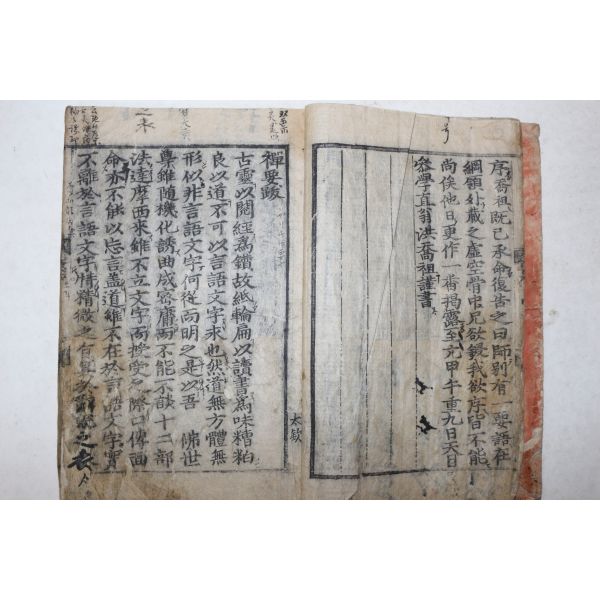 序喬祖旣已承命復告之曰師別有一要語在
綱領外藏之虛空骨中兄欲鋟我欲序皆不能
尚俟他日更作一番揭露至元甲午重九日天日
叅學直翁洪喬祖謹書
禪要跋
古靈以閱經爲鑽故紙輪扁以讀書爲味糟粕
良以道不可以言語文字求也然道無方體無
形似非言語文字何從而明之是以吾 佛世
尊雖隨機化誘曲成密庸而不能不談十二部
法達摩西來雖不立文字而授受之際口傳面
命亦不能以忘言盖道雖不在於言語文字實
不離於言語文字情精微之
太欽
之末